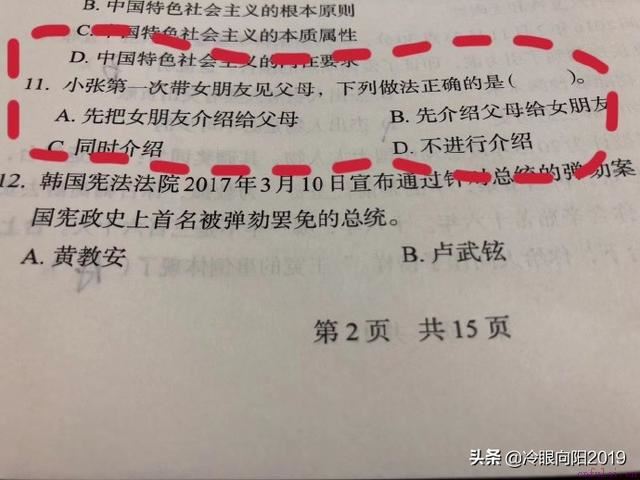 B. 中国特色社会主义的根本原则
C. 中国特色社会主义的本质属性
D. 中国特色社会主义的内在要求
11. 小张第一次带女朋友见父母，下列做法正确的是(    )。
A. 先把女朋友介绍给父母    B. 先介绍父母给女朋友
C. 同时介绍    D. 不进行介绍
12. 韩国宪法法院2017年3月10日宣布通过针对总统的弹劾案
国宪政史上首名被弹劾罢免的总统。
A. 黄教安    B. 卢武铉
第 2 页    共 15 页
头条 @冷眼向阳2019